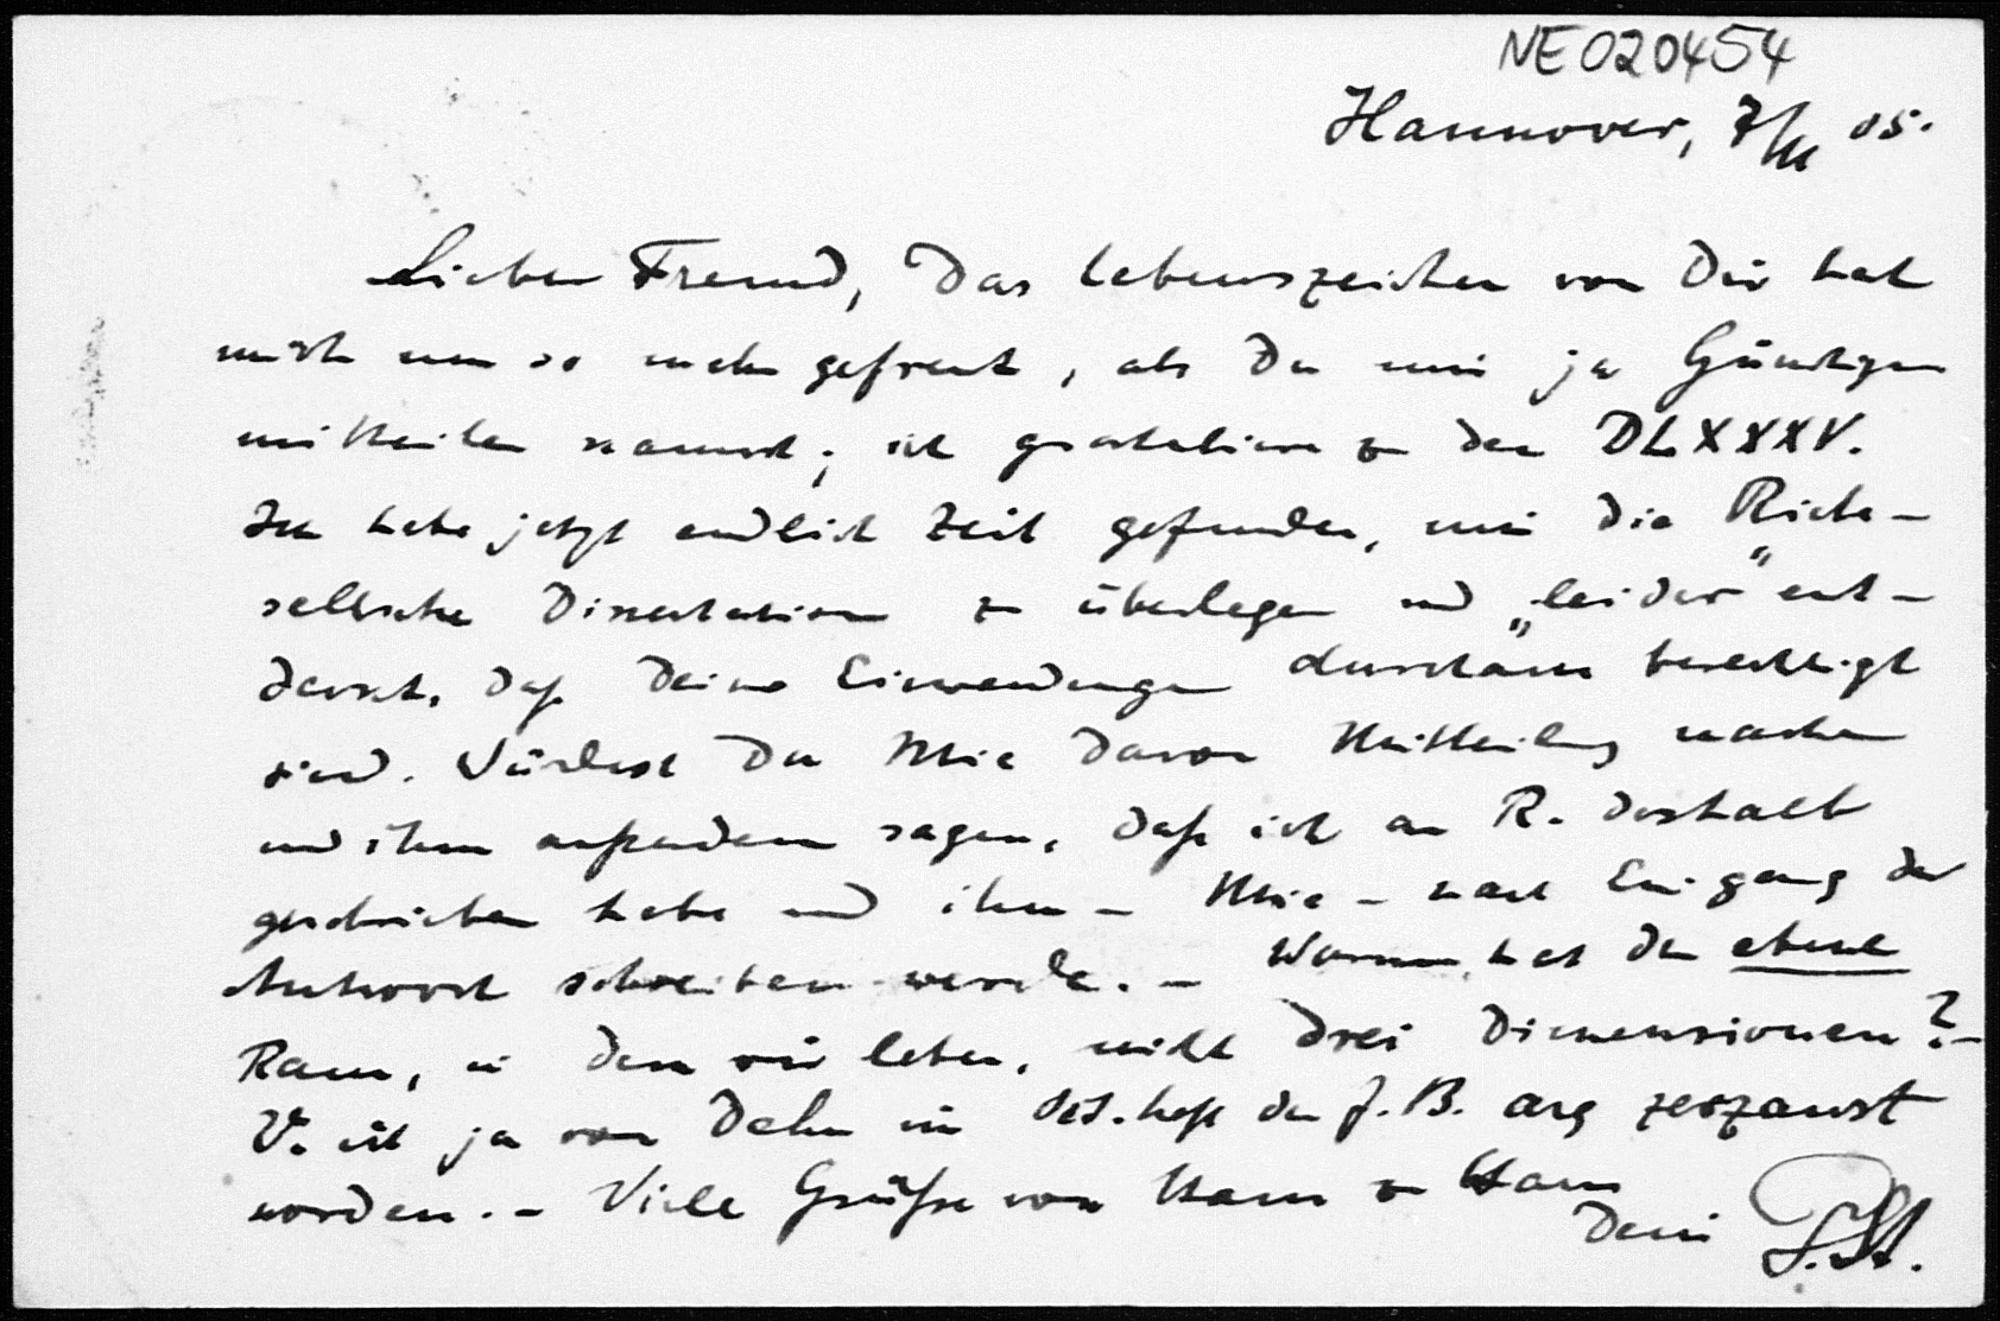 NE020454
Hannover, 7/III 05.
Lieber Freund, Das Lebenszeichen von Dir hat
mich um so mehr gefreut, als Du mir ja Günstiges
mitteilen kannst; ich gratuliere zu den DLXXXV.
Ich habe jetzt endlich Zeit gefunden, mir die
Dissertation zu überlegen und „leider“ ent-
deckt, daß Deine Einwendungen durchaus berechtigt
sind. Würdest Du Mie davon Mitteilung machen
und ihm außerdem sagen, daß ich an R. deshalb
geschrieben habe und ihm – Mie – nach Eingang der
Antwort schreiben werde. – Warum hat der ebene
Raum, in dem wir leben, nicht drei Dimensionen? –
V. ist ja von Dehn im Heft der J.B. arg zerzaust
worden. – Viele Grüße von Haus zu Haus
Dein P. St.